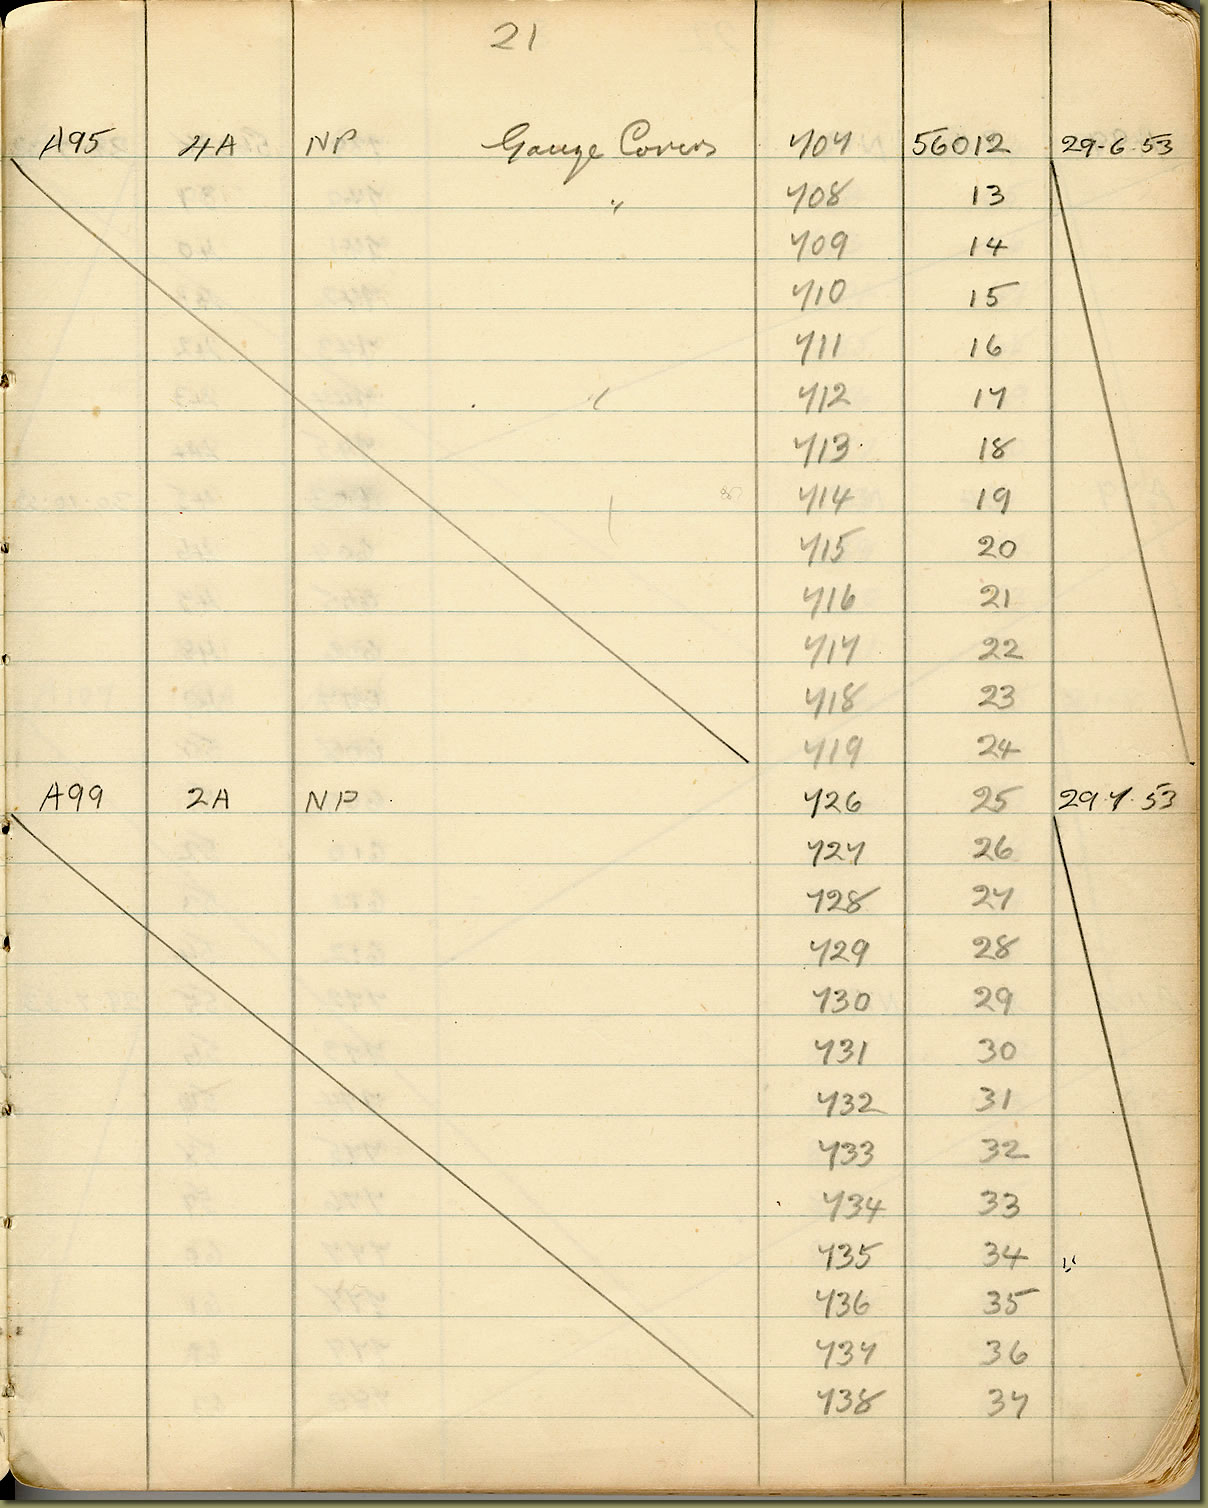 21
A95 4A NP Gauze Covers 707 56012 29-6-53
708 " 13
709 14
710 15
711 16
712 17
713 18
714 19
715 20
716 21
717 22
718 23
719 24
A99 2A NP 726 25 29.7.53
727 26
728 27
729 28
730 29
731 30
732 31
733 32
734 33
735 34
736 35
737 36
738 37